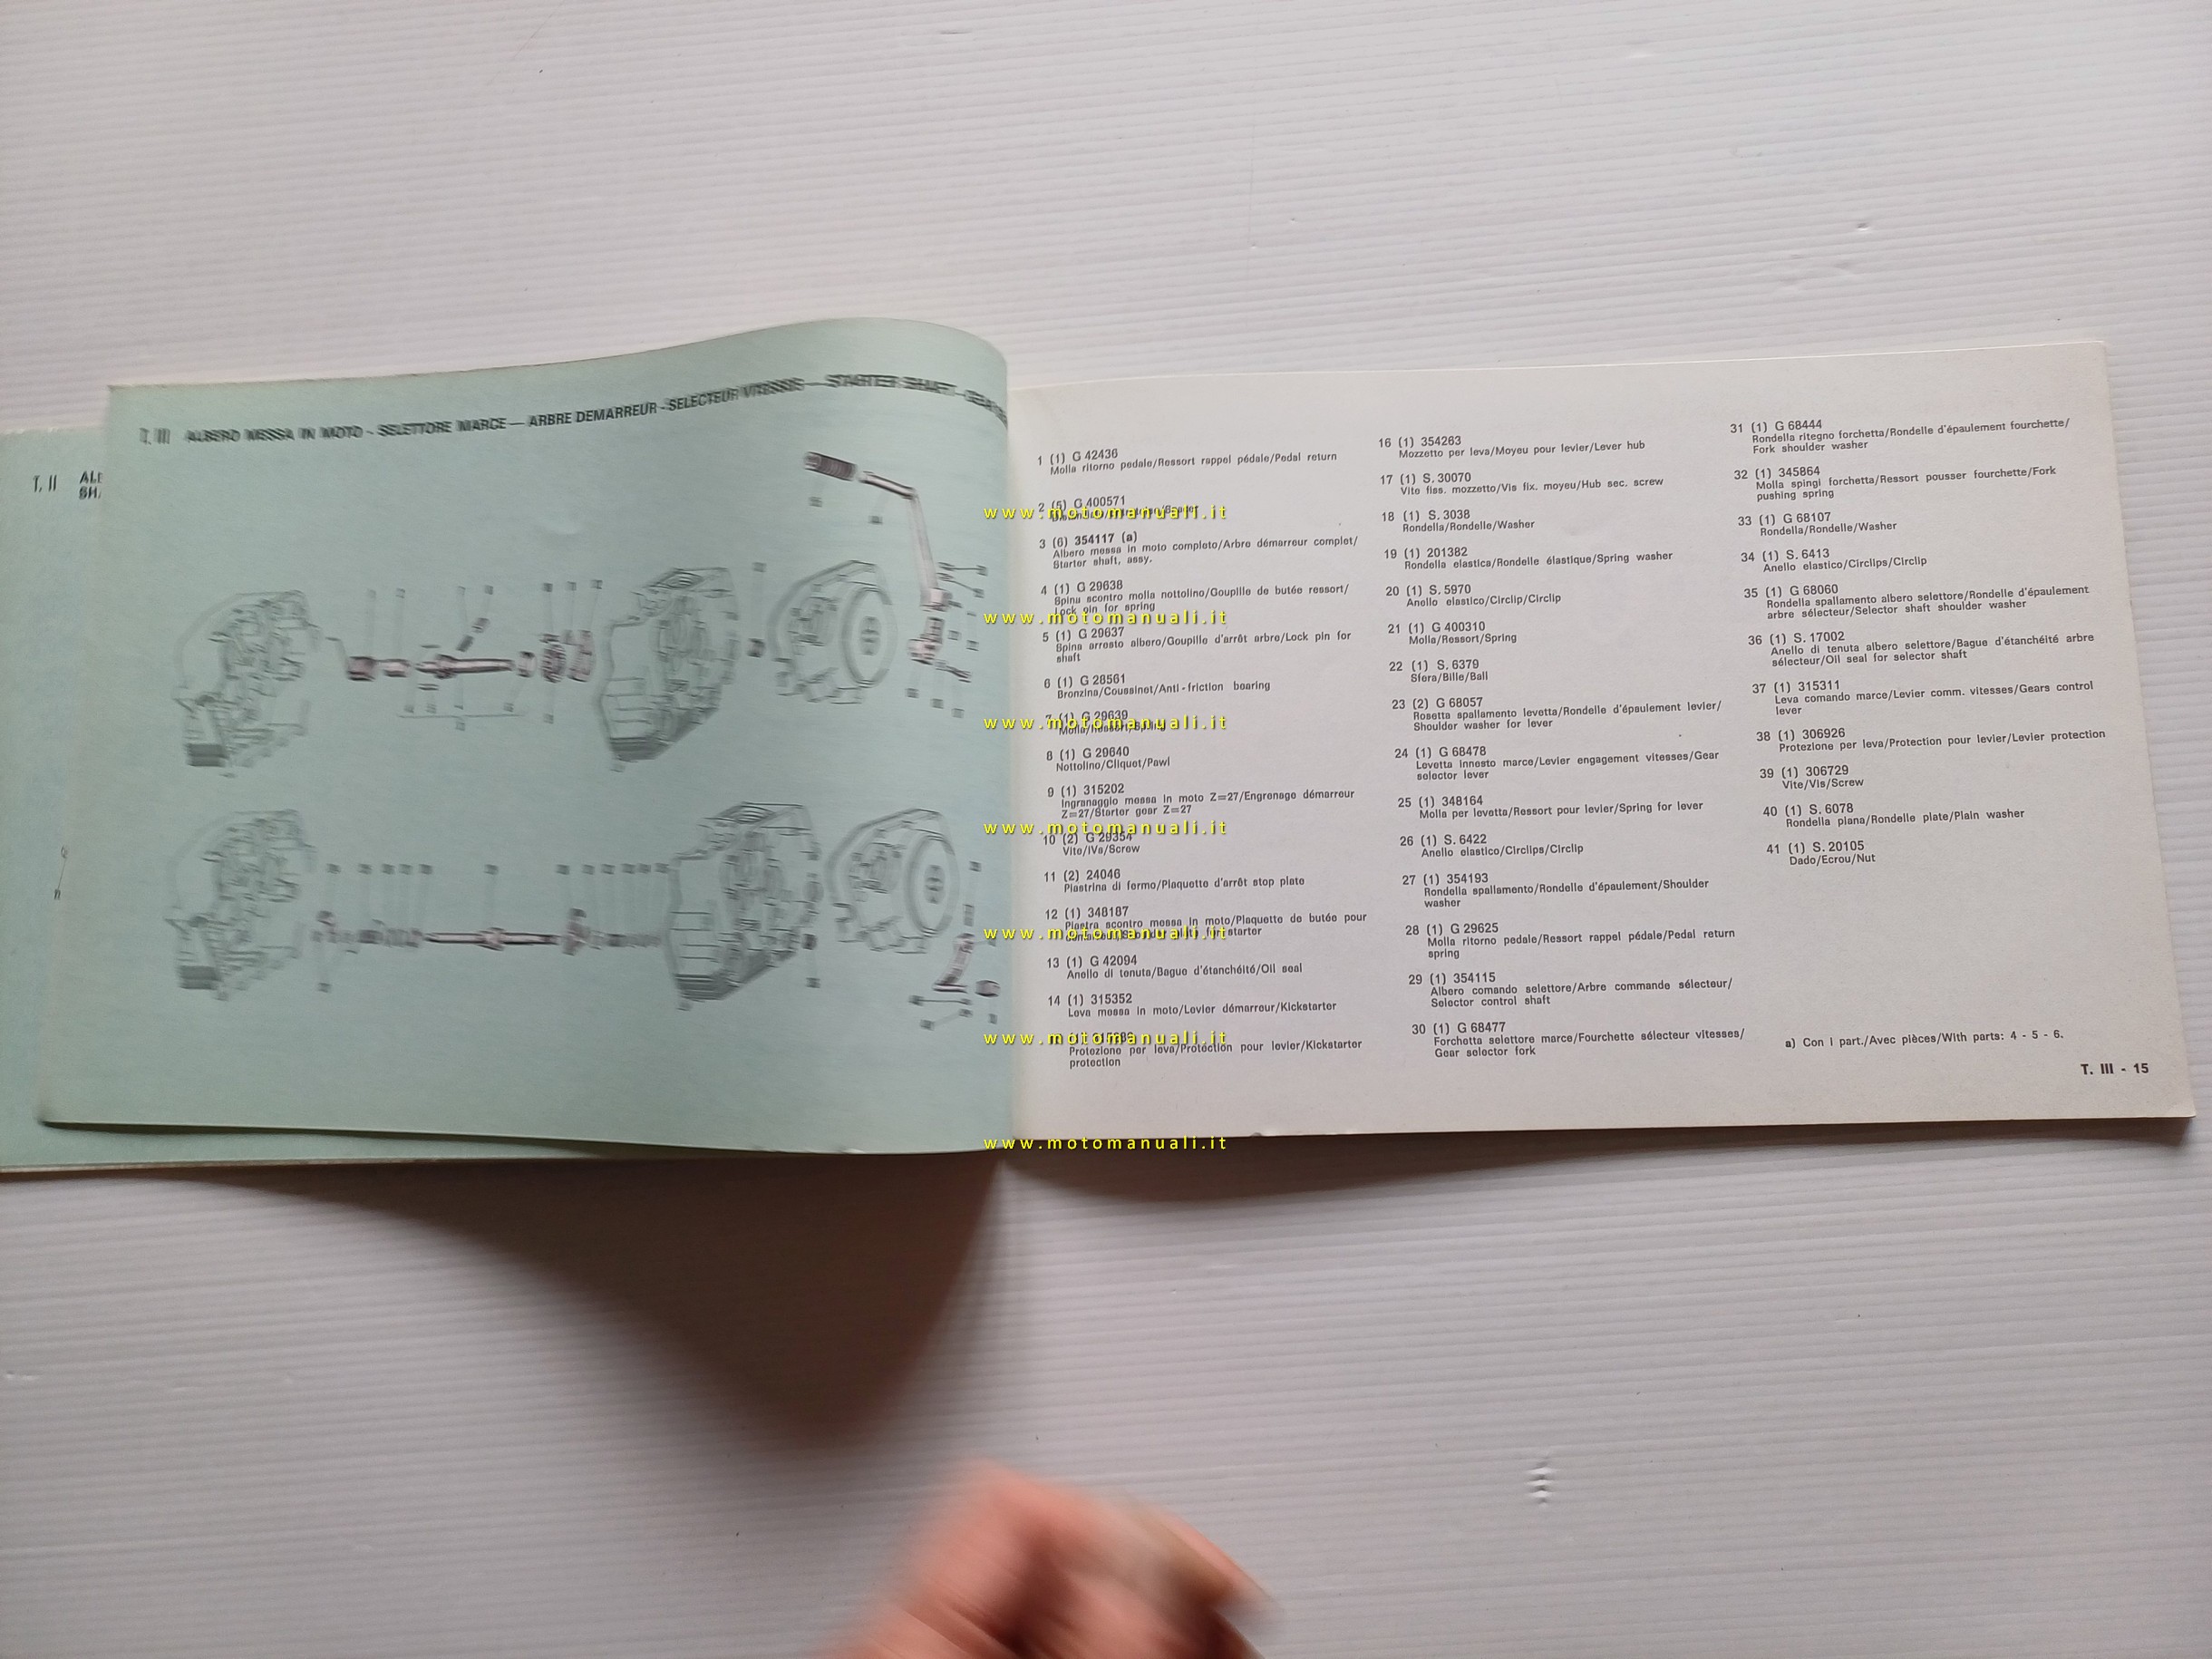 T. II ALB
SH
T. III ALBERO MESSA IN MOTO - SELETTORE MARCE — ARBRE DEMARREUR - SELECTEUR VITESSES — STARTER SHAFT - GEAR
1 (1) G 42436
Molla ritorno pedale/Ressort rappel pédale/Pedal return
2 (5) G 400571
3 (6) 354117 (a)
Albero messa in moto completo/Arbre démarreur complet/
Starter shaft, assy.
4 (1) G 29638
Spina scontro molla nottolino/Goupille de butée ressort/
Lock pin for spring
5 (1) G 29637
Spina arresto albero/Goupille d'arrêt arbre/Lock pin for
shaft
6 (1) G 28561
Bronzina/Coussinet/Anti-friction bearing
7 (1) G 29639
Molla/Ressort/Spring
8 (1) G 29640
Nottolino/Cliquet/Pawl
9 (1) 315202
Ingranaggio messa in moto Z=27/Engrenage démarreur
Z=27/Starter gear Z=27
10 (2) G 29354
Vite/IVs/Screw
11 (2) 24046
Piastrina di fermo/Plaquette d'arrêt stop plate
12 (1) 348187
Piastra scontro messa in moto/Plaquette de butée pour
starter
13 (1) G 42094
Anello di tenuta/Bague d'étanchéité/Oil seal
14 (1) 315352
Leva messa in moto/Levier démarreur/Kickstarter
Protezione per leva/Protection pour levier/Kickstarter
protection
16 (1) 354263
Mozzetto per leva/Moyeu pour levier/Lever hub
17 (1) S. 30070
Vite fiss. mozzetto/Vis fix. moyeu/Hub sec. screw
18 (1) S. 3038
Rondella/Rondelle/Washer
19 (1) 201382
Rondella elastica/Rondelle élastique/Spring washer
20 (1) S. 5970
Anello elastico/Circlip/Circlip
21 (1) G 400310
Molla/Ressort/Spring
22 (1) S. 6379
Sfera/Bille/Ball
23 (2) G 68057
Rosetta spallamento levetta/Rondelle d'épaulement levier/
Shoulder washer for lever
24 (1) G 68478
Levetta innesto marce/Levier engagement vitesses/Gear
selector lever
25 (1) 348164
Molla per levetta/Ressort pour levier/Spring for lever
26 (1) S. 6422
Anello elastico/Circlips/Circlip
27 (1) 354193
Rondella spallamento/Rondelle d'épaulement/Shoulder
washer
28 (1) G 29625
Molla ritorno pedale/Ressort rappel pédale/Pedal return
spring
29 (1) 354115
Albero comando selettore/Arbre commande sélecteur/
Selector control shaft
30 (1) G 68477
Forchetta selettore marce/Fourchette sélecteur vitesses/
Gear selector fork
31 (1) G 68444
Rondella ritegno forchetta/Rondelle d'épaulement fourchette/
Fork shoulder washer
32 (1) 345864
Molla spingi forchetta/Ressort pousser fourchette/Fork
pushing spring
33 (1) G 68107
Rondella/Rondelle/Washer
34 (1) S. 6413
Anello elastico/Circlips/Circlip
35 (1) G 68060
Rondella spallamento albero selettore/Rondelle d'épaulement
arbre sélecteur/Selector shaft shoulder washer
36 (1) S. 17002
Anello di tenuta albero selettore/Bague d'étanchéité arbre
sélecteur/Oil seal for selector shaft
37 (1) 315311
Leva comando marce/Levier comm. vitesses/Gears control
lever
38 (1) 306926
Protezione per leva/Protection pour levier/Levier protection
39 (1) 306729
Vite/Vis/Screw
40 (1) S. 6078
Rondella piana/Rondelle plate/Plain washer
41 (1) S. 20105
Dado/Ecrou/Nut
a) Con i part./Avec pièces/With parts: 4 - 5 - 6.
T. III - 15
www.motomanuali.it
www.motomanuali.it
www.motomanuali.it
www.motomanuali.it
www.motomanuali.it
www.motomanuali.it
www.motomanuali.it